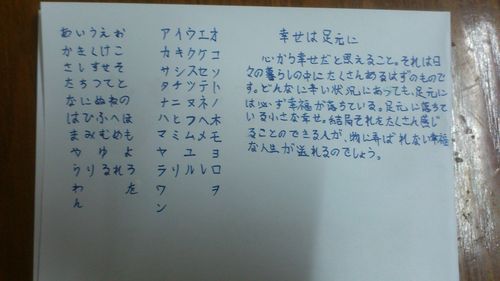 あいうえお
かきくけこ
さしすせそ
たちつてと
なにぬねの
はひふへほ
まみむめも
や ゆ よ
らりるれろ
わ を
ん
アイウエオ
カキクケコ
サシスセソ
タチツテト
ナニヌネノ
ハヒフヘホ
マミムメモ
ヤ ユ ヨ
ラリルレロ
ワ ヲ
ン
幸せは足元に
心から幸せだと思えること。それは日
々の暮らしの中にたくさんあるはずのもので
す。どんなに辛い状況にあっても、足元に
は必ず幸福が落ちている。足元に落ちて
いる小さな幸せ。結局それをたくさん感じ
ることのできる人が、物に弄ばれない幸福
な人生が送れるのでしょう。